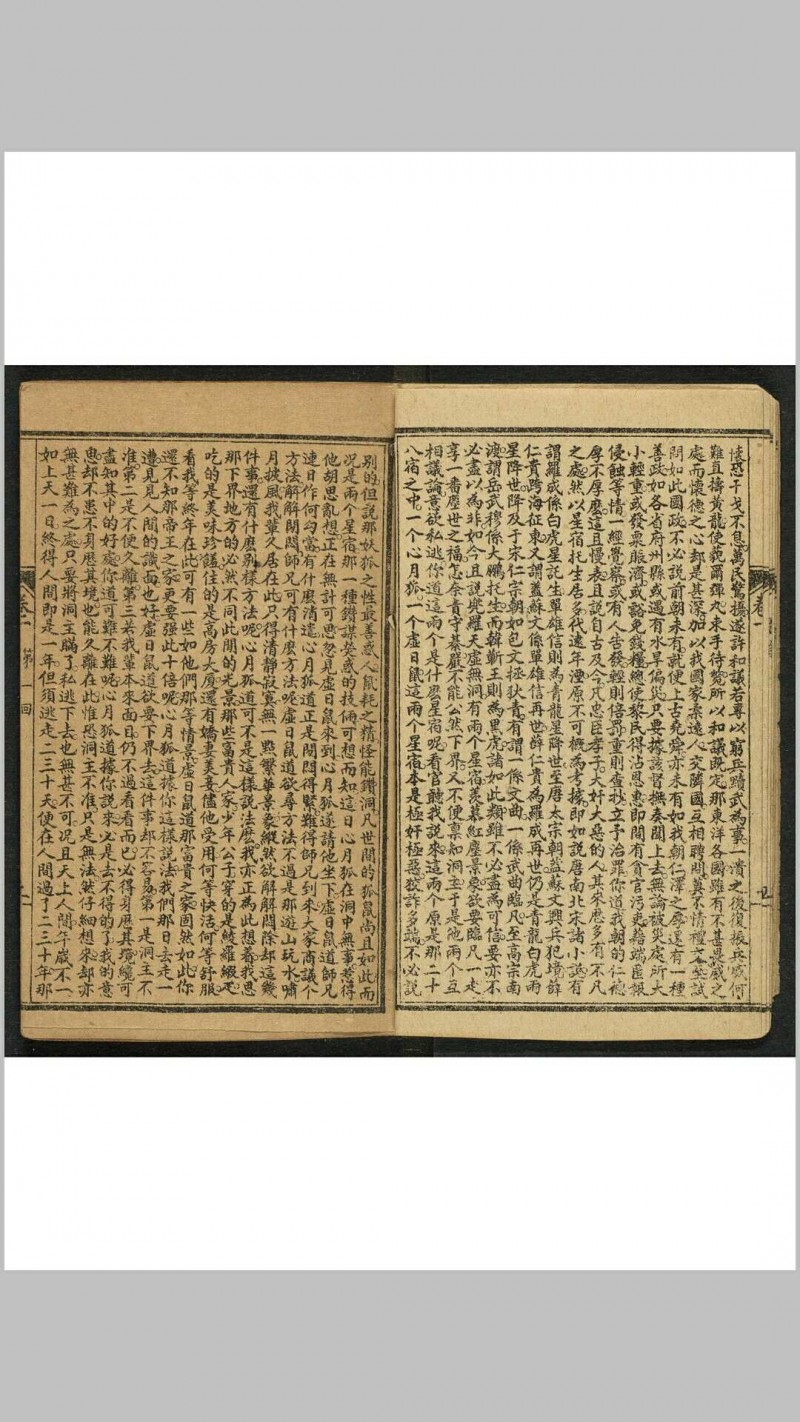 懷恐干戈不息萬民驚擾遂許和議若專以窮兵黷武為事一潰之後復振兵威何
難直擣黃龍使藐爾彈丸束手待斃所以和議旣定那東洋各國雖有不甚畏威之
處而懷德之心却是甚深加以我國家柔遠人交隣國互相聘問莫不情禮交至試
問如此國政不必說前朝未有就便上古堯舜亦未有如我朝仁澤之厚還有一種
善政如各省府州縣或遇有水旱偏災只要據該督撫奏聞上去無論被災處所大
小輕重或發粟賑濟或豁免錢糧總使黎民得沾恩惠即間有貪官污吏藉端匿報
侵蝕等情一經覺察或有人告發輕則倍罰重則查抄立予治罪你道我朝的仁德
厚不厚麼這且慢表且說自古及今凡忠臣孝子大奸大惡的人其來歷多有不凡
之處然以星宿托生居多代遠年湮原不可槪為考據即如說唐南北宋諸小說有
謂羅成係白虎星託生單雄信則為青龍星降世至唐太宗朝蓋蘇文興兵犯境薛
仁貴跨海征東又謂蓋蘇文係單雄信再世薛仁貴為羅成再世仍是青龍白虎兩
星降世降及于宋仁宗朝如包文拯狄青有謂一係文曲一係武曲臨凡至高宗南
渡謂岳武穆係大鵬托生而韓蘄王則為黑虎諸如此類雖不必盡為可信要亦不
必盡以為非如今且說兜羅天虛無洞有兩个星宿羨慕紅塵景象欲要臨凡一走
享一番塵世之福怎奈責守綦嚴不能公然下界又不便稟知洞主于是他兩个互
相議論意欲私逃你道這兩个是什麼星宿呢看官聽我說來這兩个原是那二十
八宿之中一个心月狐一个虛日鼠這兩个星宿本是極奸極惡狡詐多端不必說
卷一
別的但說那妖狐之性最善惑人鼠耗之精怪能鑽洞凡世間的狐鼠尚且如此而
況是兩个星宿那一種鑽謀癸惑的技倆可想而知這日心月狐在洞中無事惹得
他胡思亂想正在無計可思忽見虛日鼠來到心月狐遂請他坐下虛日鼠道師兄
連日作何勾當有什麼消遣心月狐道正是悶悶得緊難得師兄到來大家商議个
方法解解悶悶師兄可有什麼方法呢虛日鼠道欲尋方法不過是那遊山玩水嘯
月披風我輩久居在此只得清靜寂寞無一點繁華景象縱然欲解解悶除却這幾
件事還有什麼別樣方法呢心月狐道可不是這樣說法麽我亦正為此想着我思
那下界地方的必然不同此間的光景那些富貴人家少年公子穿的是綾羅緞疋
吃的是美味珍饈住的是高房大厦還有嬌妻美妾儘他受用何等快活何等舒服
看我等終年在此可有一些如他們那等情景虛日鼠道那富貴之家固然如此你
還不知那帝王之家更要强此十倍呢心月狐道據你這樣說法我們那日去走一
遭見見人間的識面也好虛日鼠道欲要下界去這件事却不容易第一是洞主不
准第二是不便久離第三若我輩本來面目仍不過看看而已必得身歷其境纔可
盡知其中的好處你道可難不難呢心月狐道據你說來必是去不得的了我的意
思却不患不身歷其境也能久離在此惟恐洞主不准只是無法然仔細想來却亦
無甚難為之處只要將洞主瞞了私逃下去也無甚不可況且天上人間年歲不一
如上天一日終得人間即是一年但須逃走二三十天便在人間過了二三十年那
卷一
第一回